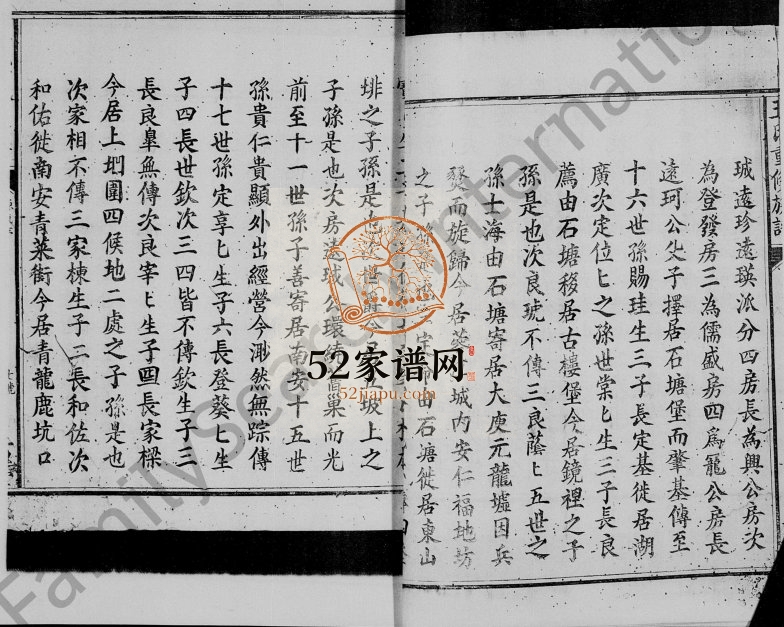 珹遠珍遠瑛派分四房長為興公房次
為登發房三為儒盛房四為寵公房長
遠珂公父子擇居石塘堡而肇基傳至
十六世孫賜珪生三子長定基徙居湖
廣次定位匕之孫世棠匕生三子長良
薦由石塘移居古樓堡今居鏡裡之子
孫是也次良琥不傳三良蔭匕五世之
孫士海由石塘寄居大庾元龍墟因兵
燹而旋歸今居 城內安仁福地坊
之子 由石塘徙居東山
排之子孫是也 坂上之
子孫是也次房 公環 巢而光
前至十一世孫子善寄居南安十五世
孫貴仁貴顯外出經營今渺然無踪傳
十七世孫定享匕生子六長登葵匕生
子四長世欽次三四皆不傳欽生子三
長良皐無傳次良宰匕生子四長家樑
今居上圳圍四候地二處之子孫是也
次家相不傳三家棟生子二長和佐次
和佑徙南安青菜街今居青龍鹿坑口
重修族譜
52家谱网
52jiapu.com
FamilySearch International